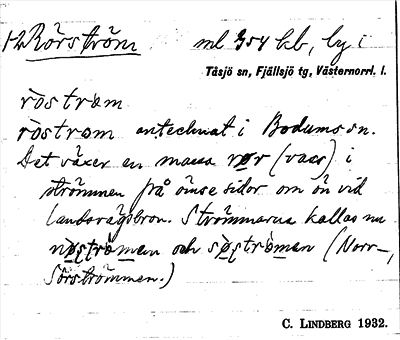 1-2 Rörström ml 354 kb, by i
Tåsjö sn, Fjällsjö tg, Västernorrl. l.
röstrøm
röstrøm antecknat i Bodums sn.
Det växer en massa rør (vass) i
strömmen på ömse sidor om ön vid
landsvägsbron. Strömmarna kallas nu
nøstrømen och søstrømen (Norr-,
Sörströmmen.)
C. LINDBERG 1932.